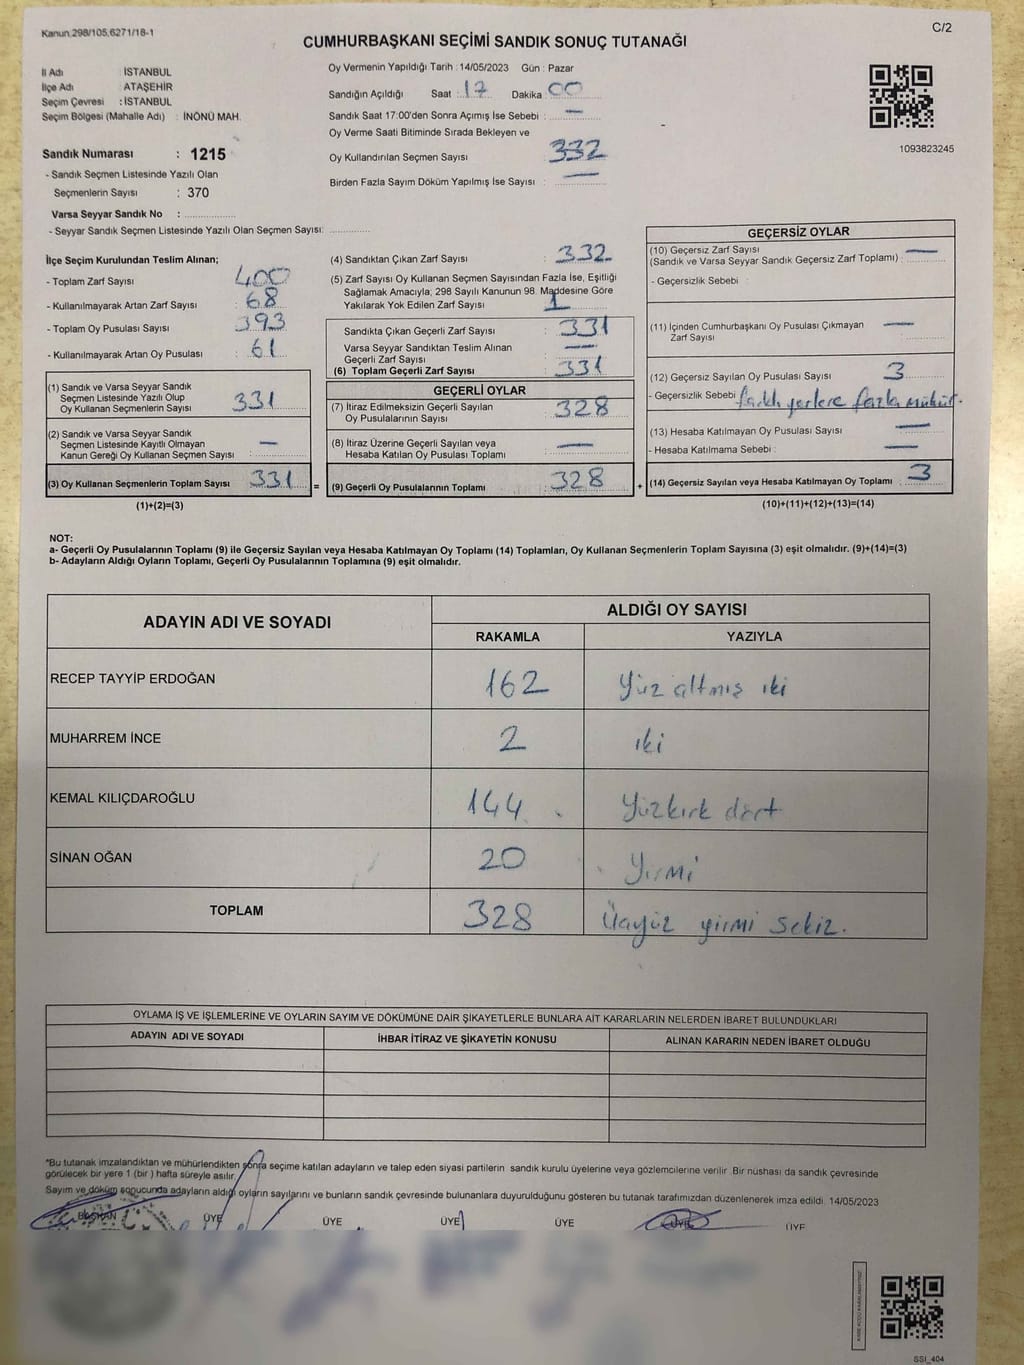 Kanun 298/105,6271/18-1
C/2
CUMHURBAŞKANI SEÇİMİ SANDIK SONUÇ TUTANAĞI
İl Adı : İSTANBUL
İlçe Adı ATAŞEHİR
Seçim Çevresi : İSTANBUL
Seçim Bölgesi (Mahalle Adı) : İNÖNÜ MAH.
Sandık Numarası : 1215
- Sandık Seçmen Listesinde Yazılı Olan
Seçmenlerin Sayısı : 370
Varsa Seyyar Sandık No :
- Seyyar Sandık Seçmen Listesinde Yazılı Olan Seçmen Sayısı:
Oy Vermenin Yapıldığı Tarih : 14/05/2023 Gün : Pazar
Sandığın Açıldığı Saat : 17 Dakika : 00
Sandık Saat 17:00'den Sonra Açımış İse Sebebi : —
Oy Verme Saati Bitiminde Sırada Bekleyen ve
Oy Kullandırılan Seçmen Sayısı 332
Birden Fazla Sayım Döküm Yapılmış İse Sayısı : —
1093823245
İlçe Seçim Kurulundan Teslim Alınan;
- Toplam Zarf Sayısı : 400
- Kullanılmayarak Artan Zarf Sayısı : 68
- Toplam Oy Pusulası Sayısı : 393
- Kullanılmayarak Artan Oy Pusulası : 61
(1) Sandık ve Varsa Seyyar Sandık
Seçmen Listesinde Yazılı Olup
Oy Kullanan Seçmenlerin Sayısı : 331
(2) Sandık ve Varsa Seyyar Sandık
Seçmen Listesinde Kayıtlı Olmayan
Kanun Gereği Oy Kullanan Seçmen Sayısı : —
(3) Oy Kullanan Seçmenlerin Toplam Sayısı : 331
(1)+(2)=(3)
=
(4) Sandıktan Çıkan Zarf Sayısı : 332
(5) Zarf Sayısı Oy Kullanan Seçmen Sayısından Fazla İse, Eşitliği
Sağlamak Amacıyla; 298 Sayılı Kanunun 98. Maddesine Göre
Yakılarak Yok Edilen Zarf Sayısı : 1
Sandıkta Çıkan Geçerli Zarf Sayısı : 331
Varsa Seyyar Sandıktan Teslim Alınan
Geçerli Zarf Sayısı : —
(6) Toplam Geçerli Zarf Sayısı : 331
GEÇERLİ OYLAR
(7) İtiraz Edilmeksizin Geçerli Sayılan
Oy Pusulalarının Sayısı : 328
(8) İtiraz Üzerine Geçerli Sayılan veya
Hesaba Katılan Oy Pusulası Toplamı : —
(9) Geçerli Oy Pusulalarının Toplamı : 328
+
GEÇERSİZ OYLAR
(10) Geçersiz Zarf Sayısı
(Sandık ve Varsa Seyyar Sandık Geçersiz Zarf Toplamı) : —
- Geçersizlik Sebebi :
(11) İçinden Cumhurbaşkanı Oy Pusulası Çıkmayan
Zarf Sayısı : —
(12) Geçersiz Sayılan Oy Pusulası Sayısı : 3
- Geçersizlik Sebebi : farklı yerlere fazla mühür.
(13) Hesaba Katılmayan Oy Pusulası Sayısı : —
- Hesaba Katılmama Sebebi : —
(14) Geçersiz Sayılan veya Hesaba Katılmayan Oy Toplamı : 3
(10)+(11)+(12)+(13)=(14)
NOT:
a- Geçerli Oy Pusulalarının Toplamı (9) ile Geçersiz Sayılan veya Hesaba Katılmayan Oy Toplamı (14) Toplamları, Oy Kullanan Seçmenlerin Toplam Sayısına (3) eşit olmalıdır. (9)+(14)=(3)
b- Adayların Aldığı Oyların Toplamı, Geçerli Oy Pusulalarının Toplamına (9) eşit olmalıdır.
ADAYIN ADI VE SOYADI
ALDIĞI OY SAYISI
RAKAMLA YAZIYLA
RECEP TAYYİP ERDOĞAN 162 Yüz altmış iki
MUHARREM İNCE 2 iki
KEMAL KILIÇDAROĞLU 144 Yüzkırk dört
SİNAN OĞAN 20 Yirmi
TOPLAM 328 Üçyüz yirmi sekiz.
OYLAMA İŞ VE İŞLEMLERİNE VE OYLARIN SAYIM VE DÖKÜMÜNE DAİR ŞİKAYETLERLE BUNLARA AİT KARARLARIN NELERDEN İBARET BULUNDUKLARI
ADAYIN ADI VE SOYADI İHBAR İTİRAZ VE ŞİKAYETİN KONUSU ALINAN KARARIN NEDEN İBARET OLDUĞU
*Bu tutanak imzalandıktan ve mühürlendikten sonra seçime katılan adayların ve talep eden siyasi partilerin sandık kurulu üyelerine veya gözlemcilerine verilir. Bir nüshası da sandık çevresinde
görülecek bir yere 1 (bir ) hafta süreyle asılır.
Sayım ve döküm sonucunda adayların aldığı oyların sayılarını ve bunların sandık çevresinde bulunanlara duyurulduğunu gösteren bu tutanak tarafımızdan düzenlenerek imza edildi. 14/05/2023
BAŞKAN ÜYE ÜYE ÜYE ÜYE ÜYE ÜYE
SSI_404